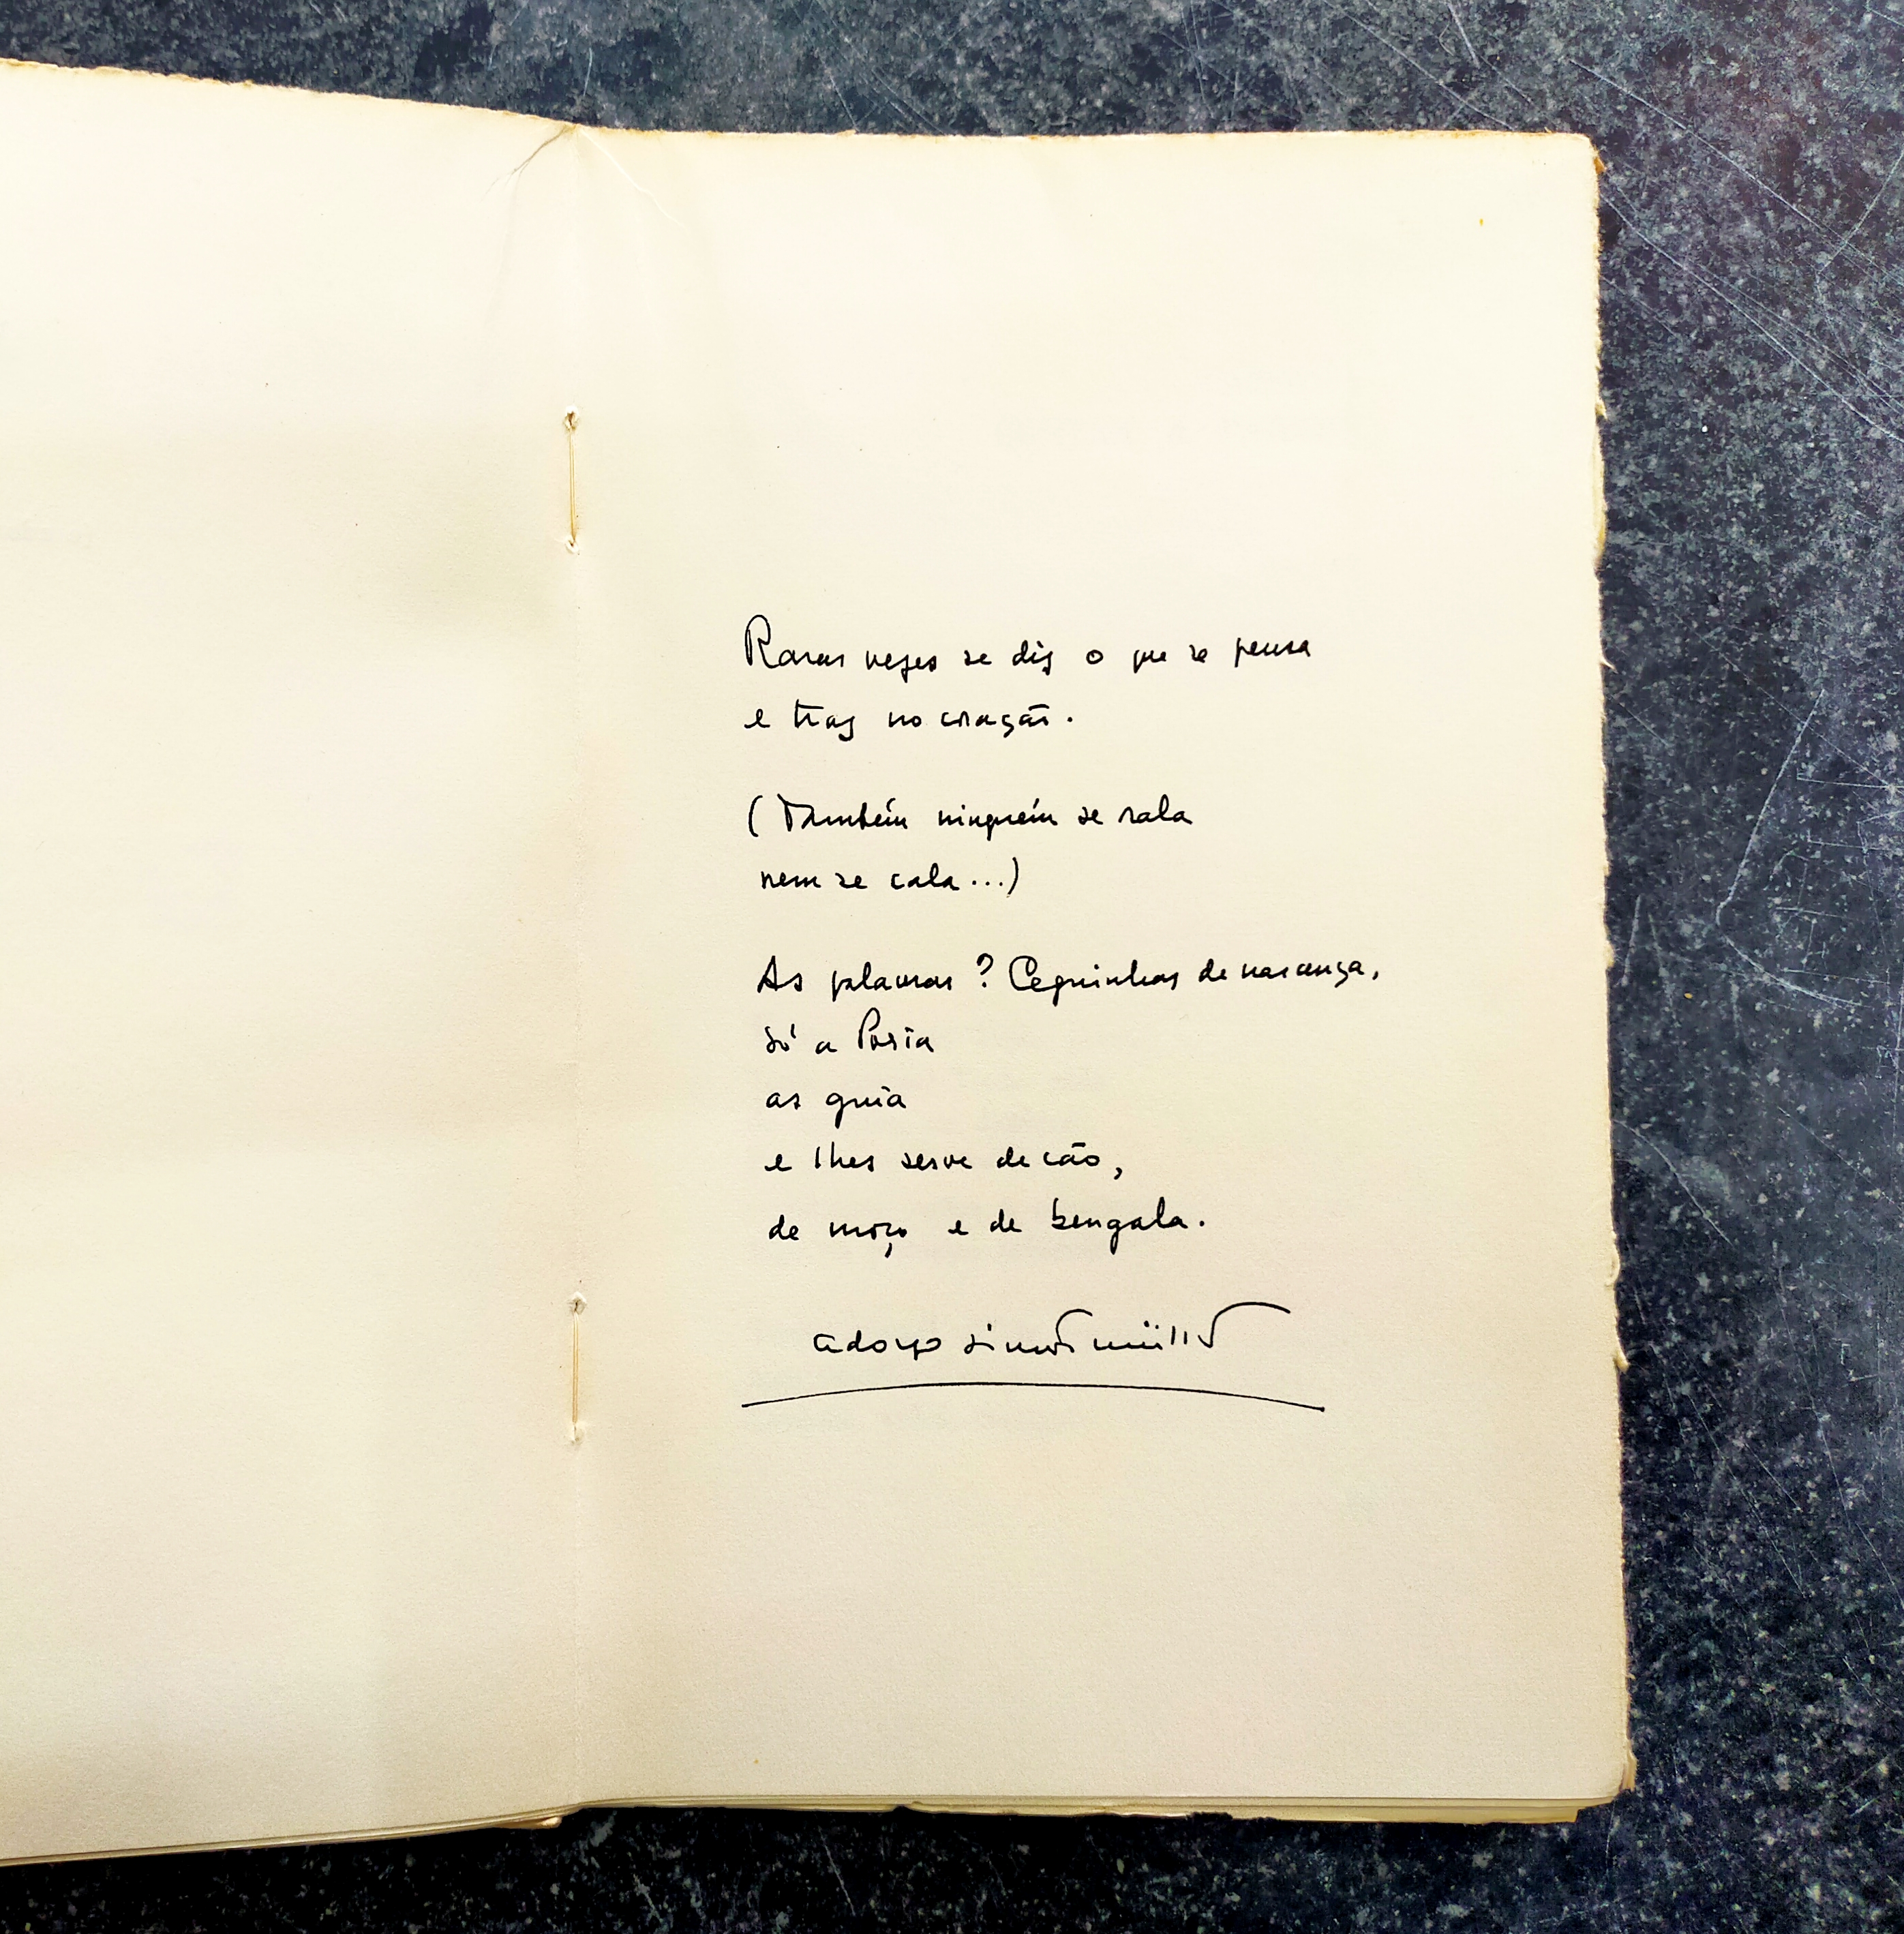 Raras vezes se diz o que se pensa
e traz no coração.
(Também ninguém se rala
nem se cala...)
As palavras? Ceguinhas de nascença,
só a Poesia
as guia
e lhes serve de cão,
de moço e de bengala.
adolfo simões müller